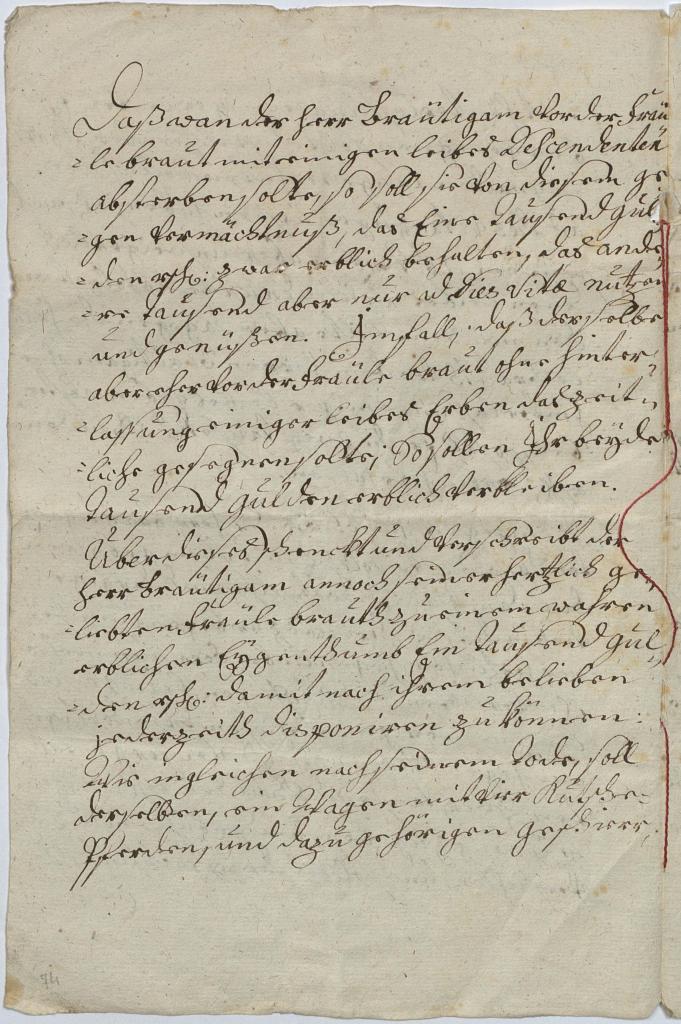 Daß wan der Herr Bräutigam vor der Fräu
=le braut mit einigen leibes Descendenten
absterben solte, so soll sie von diesem ge
gen Vermächtnuß, das Eine Tausend Gul
=den rh: zwar erblich behalten, das ande
=re Tausend aber nur ad Dies Vitæ nutzen
und genüßen. Im fall, daß derselbe
aber eher vor der Fräule braut ohne hinter
=lassung einiger leibes Erben das Zeit
=liche gesegnen solte; So sollen Ihr beÿde
Tausend Gulden erblich verbleiben.
Über dieses schenckt und verschreibt der
Herr Bräutigam annoch seiner hertzlich ge
=liebten Fräule brauth zu einem wahren
erblichen Eÿgenthumb Ein Tausend Gul
=den rh: damit nach ihrem belieben
jederzeith disponiren zu können:
Wie ingleichen nach seinem Tode, soll
derselben, ein Wagen mit Vier Kutsche=
Pferden, und dazu gehörigen geschierr,
74